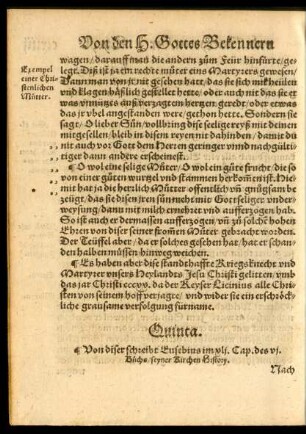 Von den H. Gottes Bekennern
wagen / darauff man die andern zům Feür hinfürte / ge-
legt. Diß ist ja em rechte můter eins Martyrers gewesen /
Exempel
einer Chri-
stenlichen
Můter.
Dann man von jr nit gesehen hatt / das sie sich mit heülen
vnd klagen häßlich gestellet hette / oder auch nit das sie et
was vnnützes auß verzagtem hertzen geredt / oder etwas
das jr vbel angestanden were / gethon hette. Sondern sie
sagt / O lieber Sůn / vollbring diß seelige reyß mit deinen
mitgesellen / bleib in disem reyen nit dahinden / damit du
nit auch vor Gott dem Herren geringer vnnd nachgülti-
tiger dann andere erscheinest.
¶ O wol eine selige Můter / O wol ein gůte frucht / die so
von einer gůten wurtzel vnnd stammen herkomen ist. Die
mit hat ja die herrlich Můter offentlich vñ gnůgsam be
zeügt / das sie disen jren sůn mehr mit Gottseliger vnder-
weysung / dann mit milch ernehret vnd aufferzogen hab.
So ist auch er dermassen aufferzogen vñ zů solcher hohen
Ehren von diser seiner from̃en Můter gebracht worden.
Der Teüffel aber / da er solches gesehen hat / hat er schan-
den halben müssen hinweg weichen.
¶ Es haben aber dise standthaffte Kriegsknecht vnd
Martyrer vnsers Heylandes Jesu Christi gelitten / vmb
das jar Christi cccxx. da der Keyser Licinius alle Chri-
sten von seinem hoff verjagte / vnd wider sie ein erschröck-
liche grausame verfolgung fürname.
Quinta.
¶ Von diser schreibt Eusebius im xli. Cap. des vj.
Bůchs seyner Kirchen History.
Nach